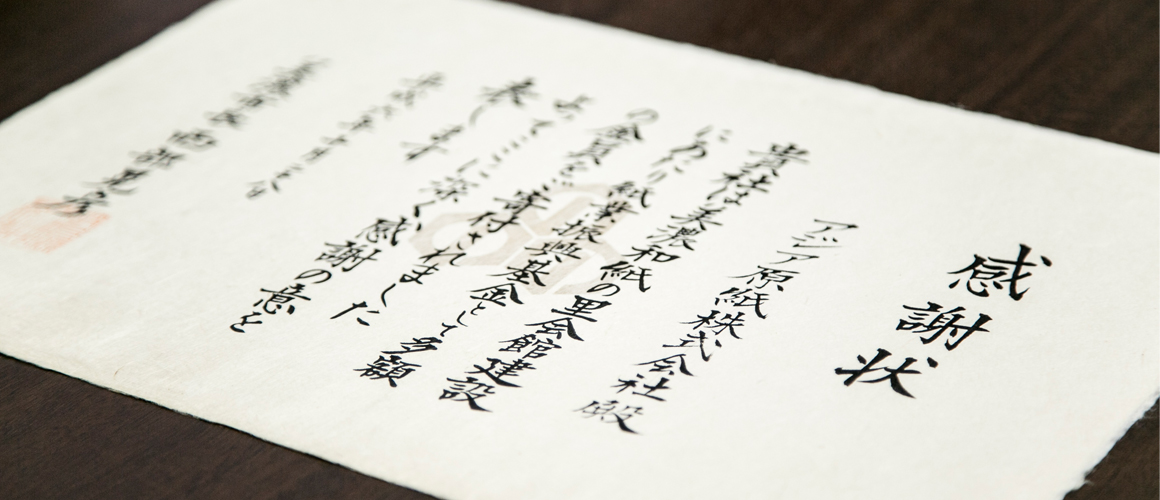 感謝状
アジア原紙株式会社殿
貴社は美濃和紙の里会館建設
にあたり紙業振興基金として多額
の金員をご寄付されました
よってここに深く感謝の意を
表します
平成六年十月
美濃市長